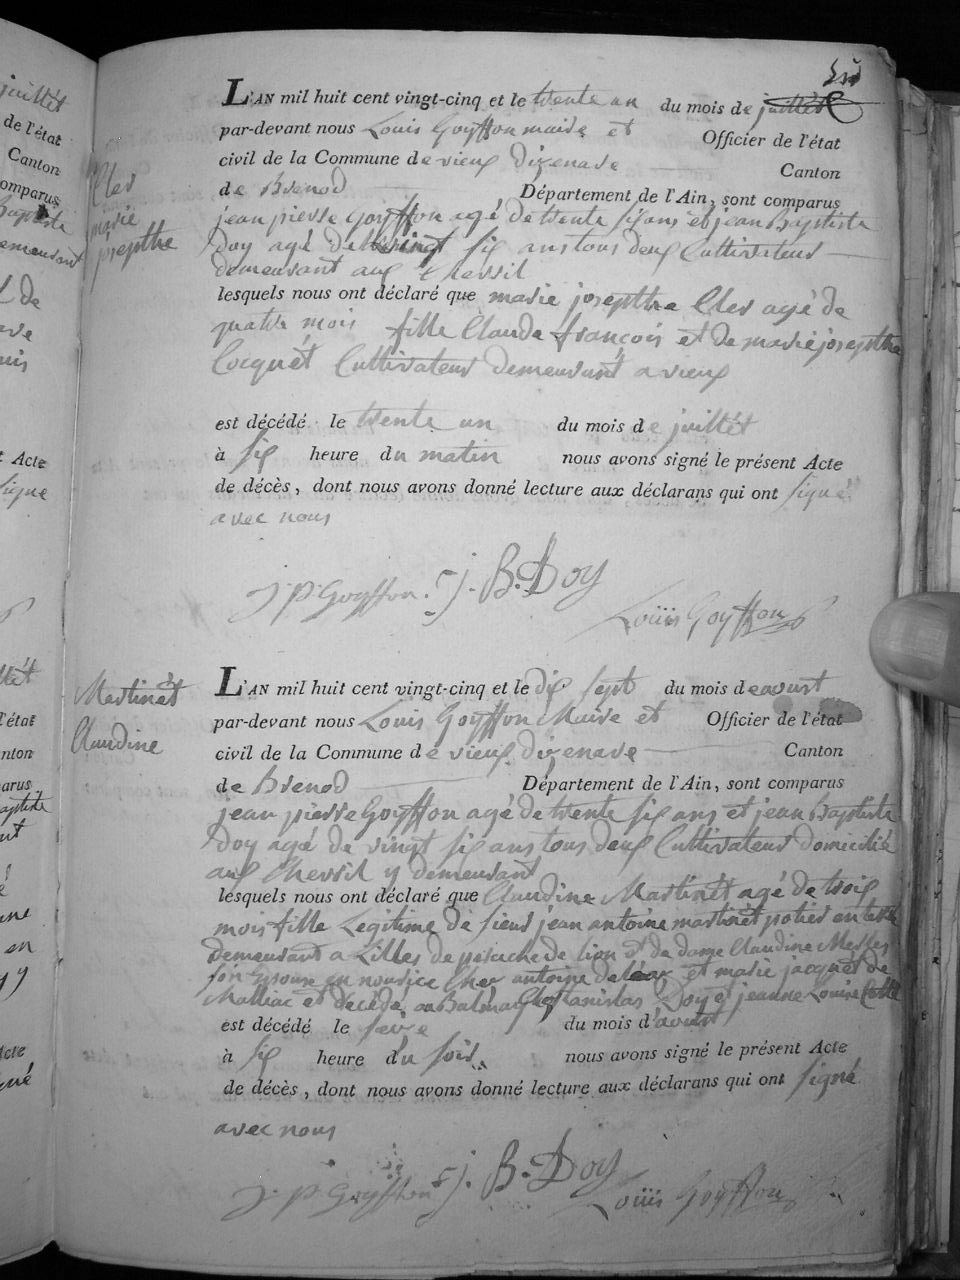 juillét
de l'état
Canton
omparus
Baptiste
demeurant
Acte
signe
l'état
Cler
marie
josepthe
L'AN mil huit cent vingt-cinq et le trente un du mois de juillét
par-devant nous Louis Goyffon maire et Officier de l'état
civil de la Commune de vieux dizenave Canton
de Brenod Département de l'Ain, sont comparus
jean pierre Goyffon agé de trente six ans et jean Baptiste
Doy agé de vingt six ans tous deux Cultivateur
demeurant aux
lesquels nous ont déclaré que marie josepthe Cler agé de
quatre mois fille Claude françois et de marie josepthe
Cocquét Cultivateur demeurant a vieux
est décédé le trente un du mois de juillét
à six heure du matin nous avons signé le présent Acte
de décès, dont nous avons donné lecture aux déclarans qui ont signé
avec nous
J. P. Goyffon. J. B. Doy
Louis Goyffon
Martinét
Claudine
L'AN mil huit cent vingt-cinq et le dix sept du mois de aoust
par-devant nous Louis Goyffon Maire et Officier de l'état
civil de la Commune de vieux dizenave Canton
de Brenod Département de l'Ain, sont comparus
jean pierre Goyffon agé de trente six ans et jean Baptiste
Doy agé de vingt six ans tous deux Cultivateur domicilié
aux y demeurant
lesquels nous ont déclaré que Claudine Martinét agé de trois
mois fille Légitime de sieur jean antoine martinét potier en
demeurant a de lion et de dame Claudine
son épouse en nourice Chez antoine et marie jacquét de
et décédé au Chez Stanislas Doy et jeanne Louise
est décédé le seize du mois d'aoust
à six heure du soir nous avons signé le présent Acte
de décès, dont nous avons donné lecture aux déclarans qui ont signé
avec nous
J. P. Goyffon J. B. Doy
Louis Goyffon